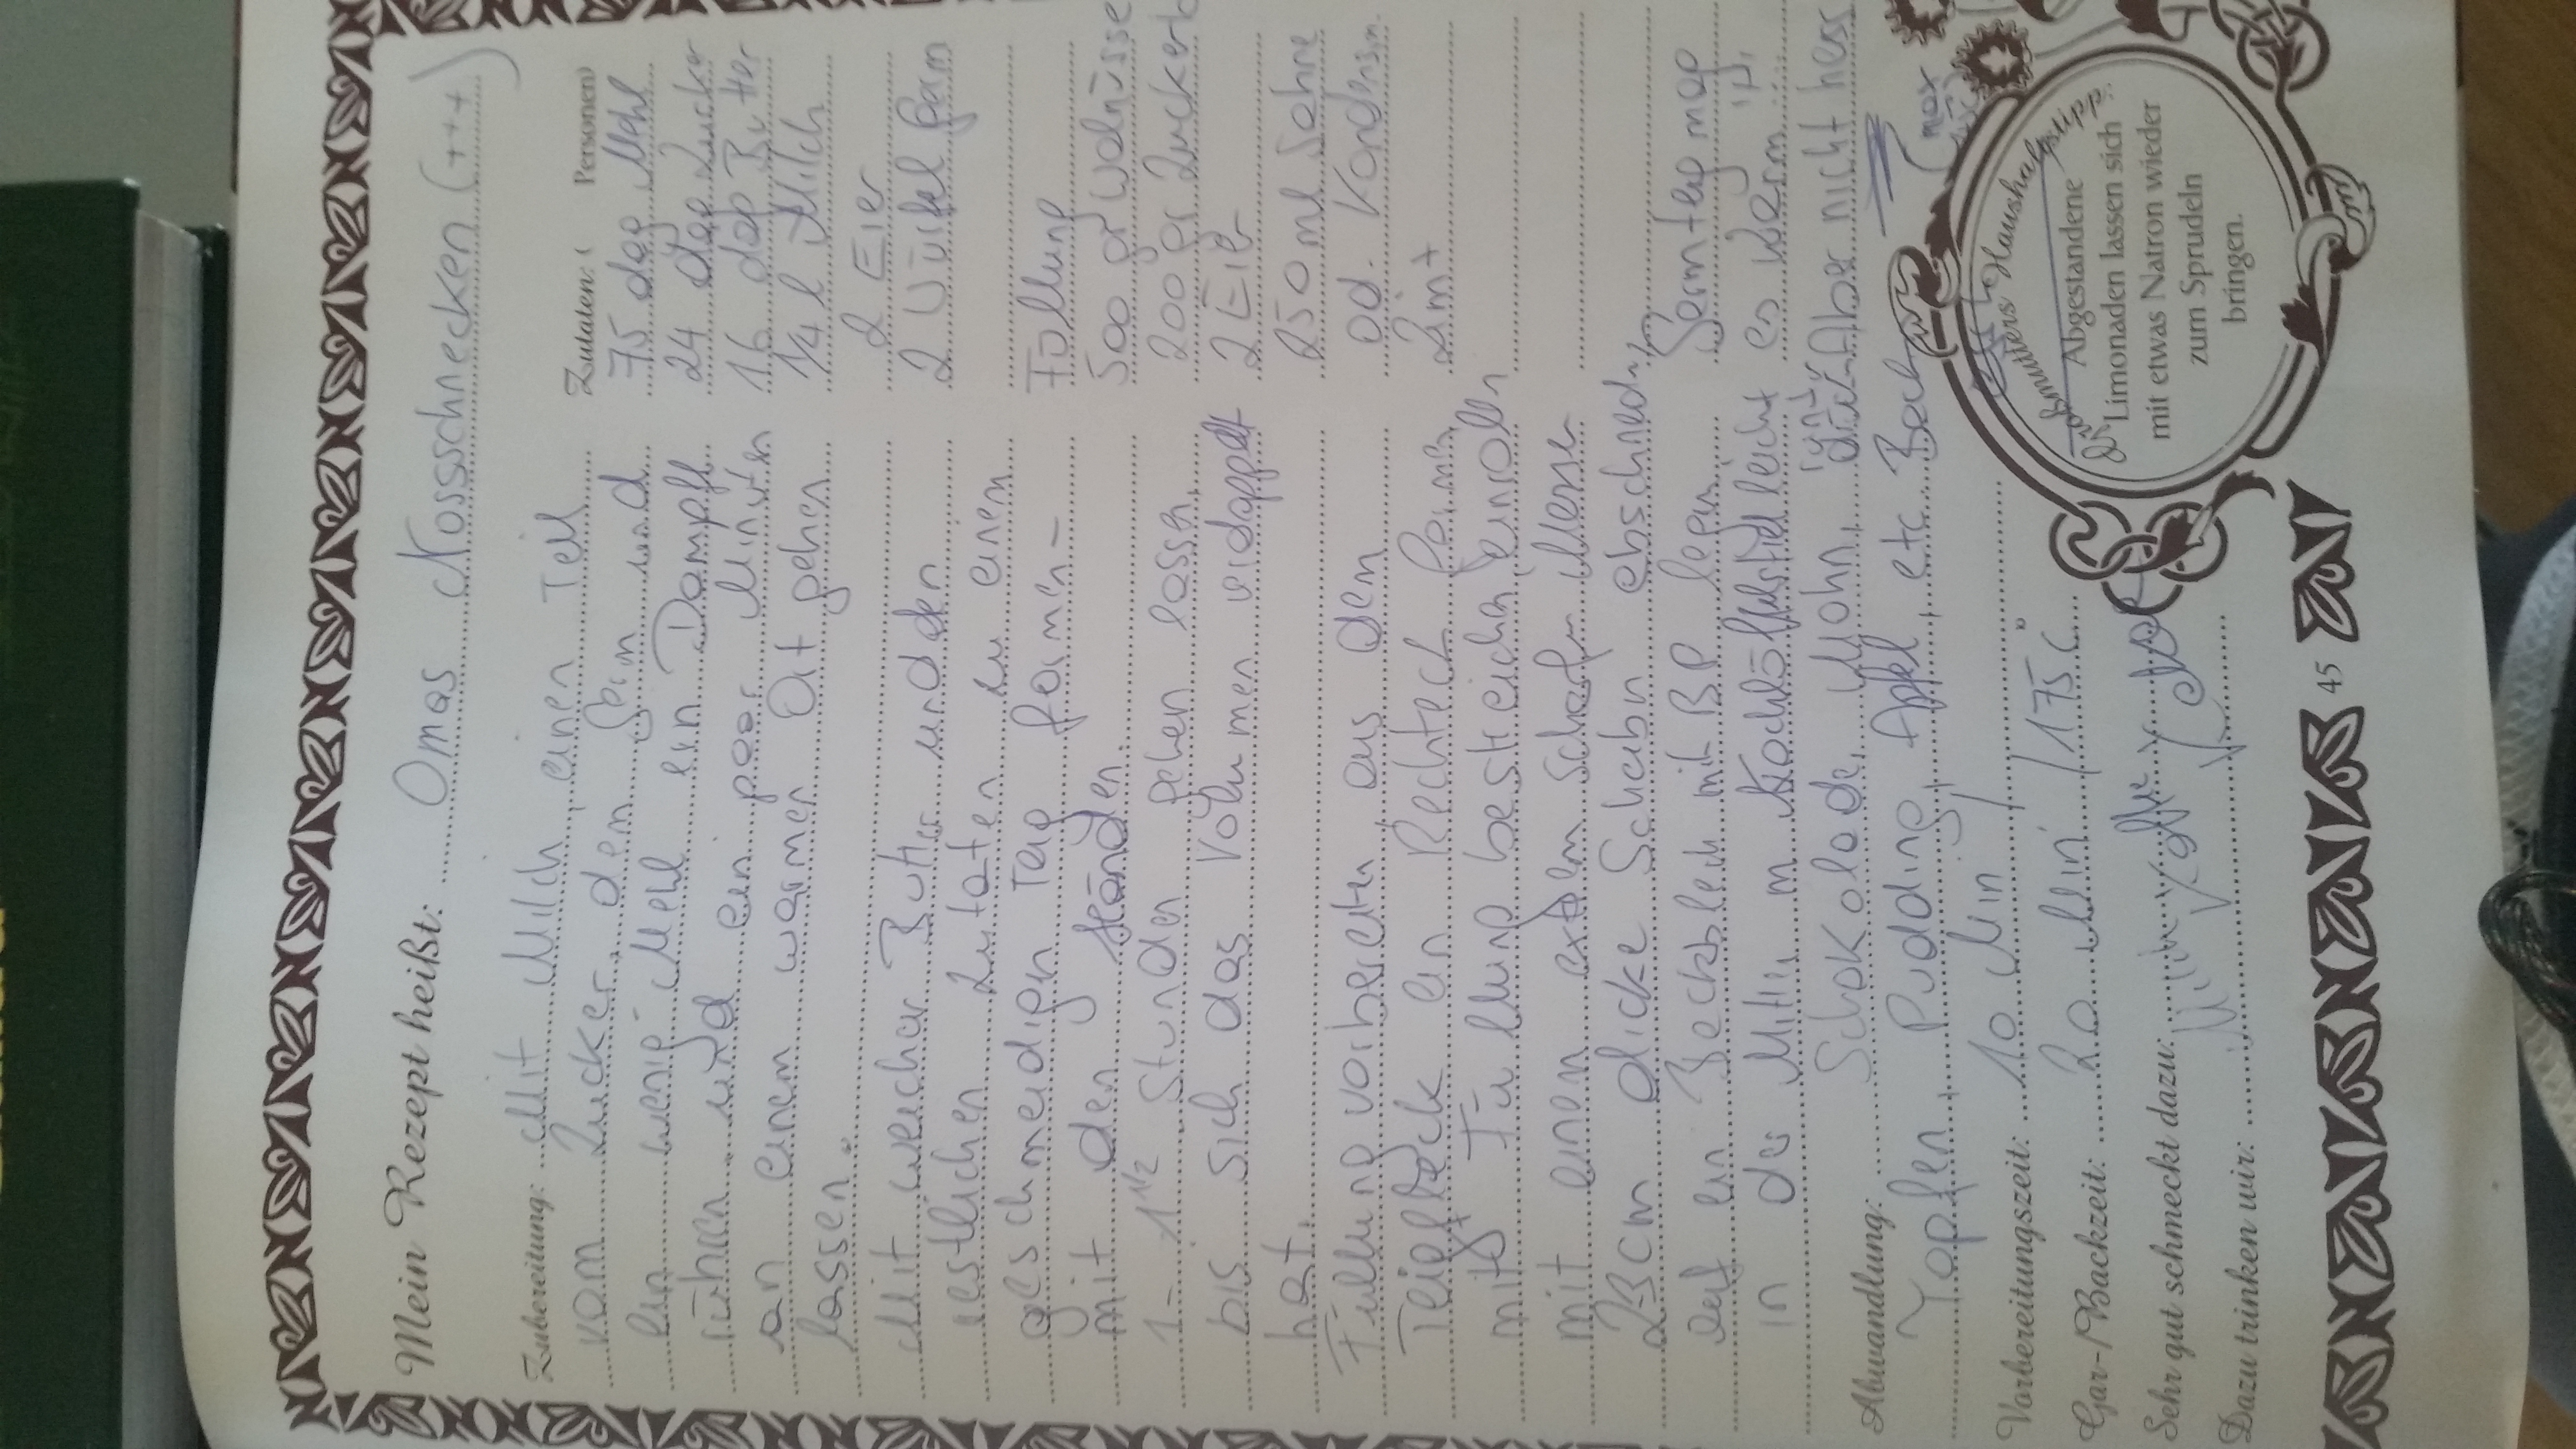 Mein Rezept heißt: Omas Nossschnecken (+++)
Zubereitung: Mit Milch, einen Teil
vom Zucker, den Germ und
ein wenig Mehl ein Dampfl
rühren und ein paar Minuten
an einem warmen Ort gehen
lassen.
Mit weicher Butter und den
restlichen Zutaten zu einem
geschmeidigen Teig formen -
mit den Händen.
1 - 1 1/2 Stunden gehen lassen,
bis sich das Volumen verdoppelt
hat.
Füllung vorbereiten aus dem
Teig ein Rechteck formen,
mit Füllung bestreichen, einrollen
mit einem scharfen Messer
2-3cm dicke Scheiben abschneiden,
auf ein Backblech mit BP legen
in der Mitte m. Kochlöffelstiel leicht
Zutaten: ( Personen)
75 dag Mehl
24 dag Zucker
16 dag Butter
1/4 l Milch
2 Eier
2 Würfel Germ
Füllung
500 gr Walnüsse
200 gr Zucker
2 Eier
250 ml Sahne
od. Kondensm.
Zimt
Germteig mag
es warm
Aber nicht heiss
(max
Abwandlung: Schokolade, Mohn,
Topfen, Pudding, Apfel, etc
Vorbereitungszeit: 10 Min
Gar-/Backzeit: 20 Min /175°C
Sehr gut schmeckt dazu:
Dazu trinken wir:
Großmutters Haushaltstipp:
Abgestandene
Limonaden lassen sich
mit etwas Natron wieder
zum Sprudeln
bringen.
45